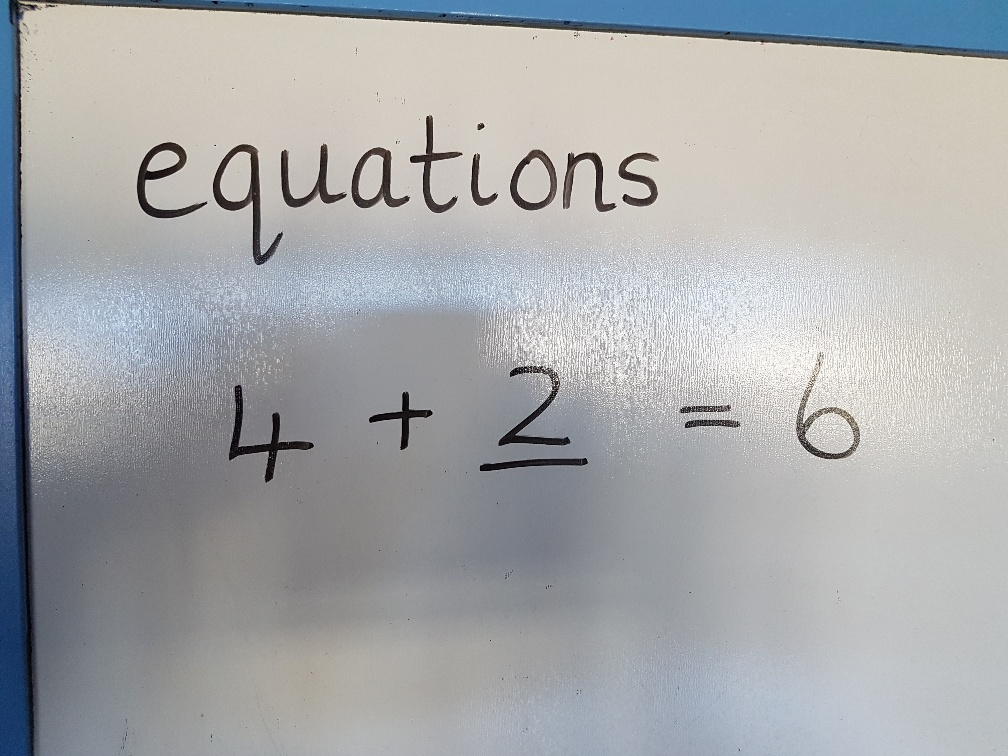 equations
4 + 2 = 6